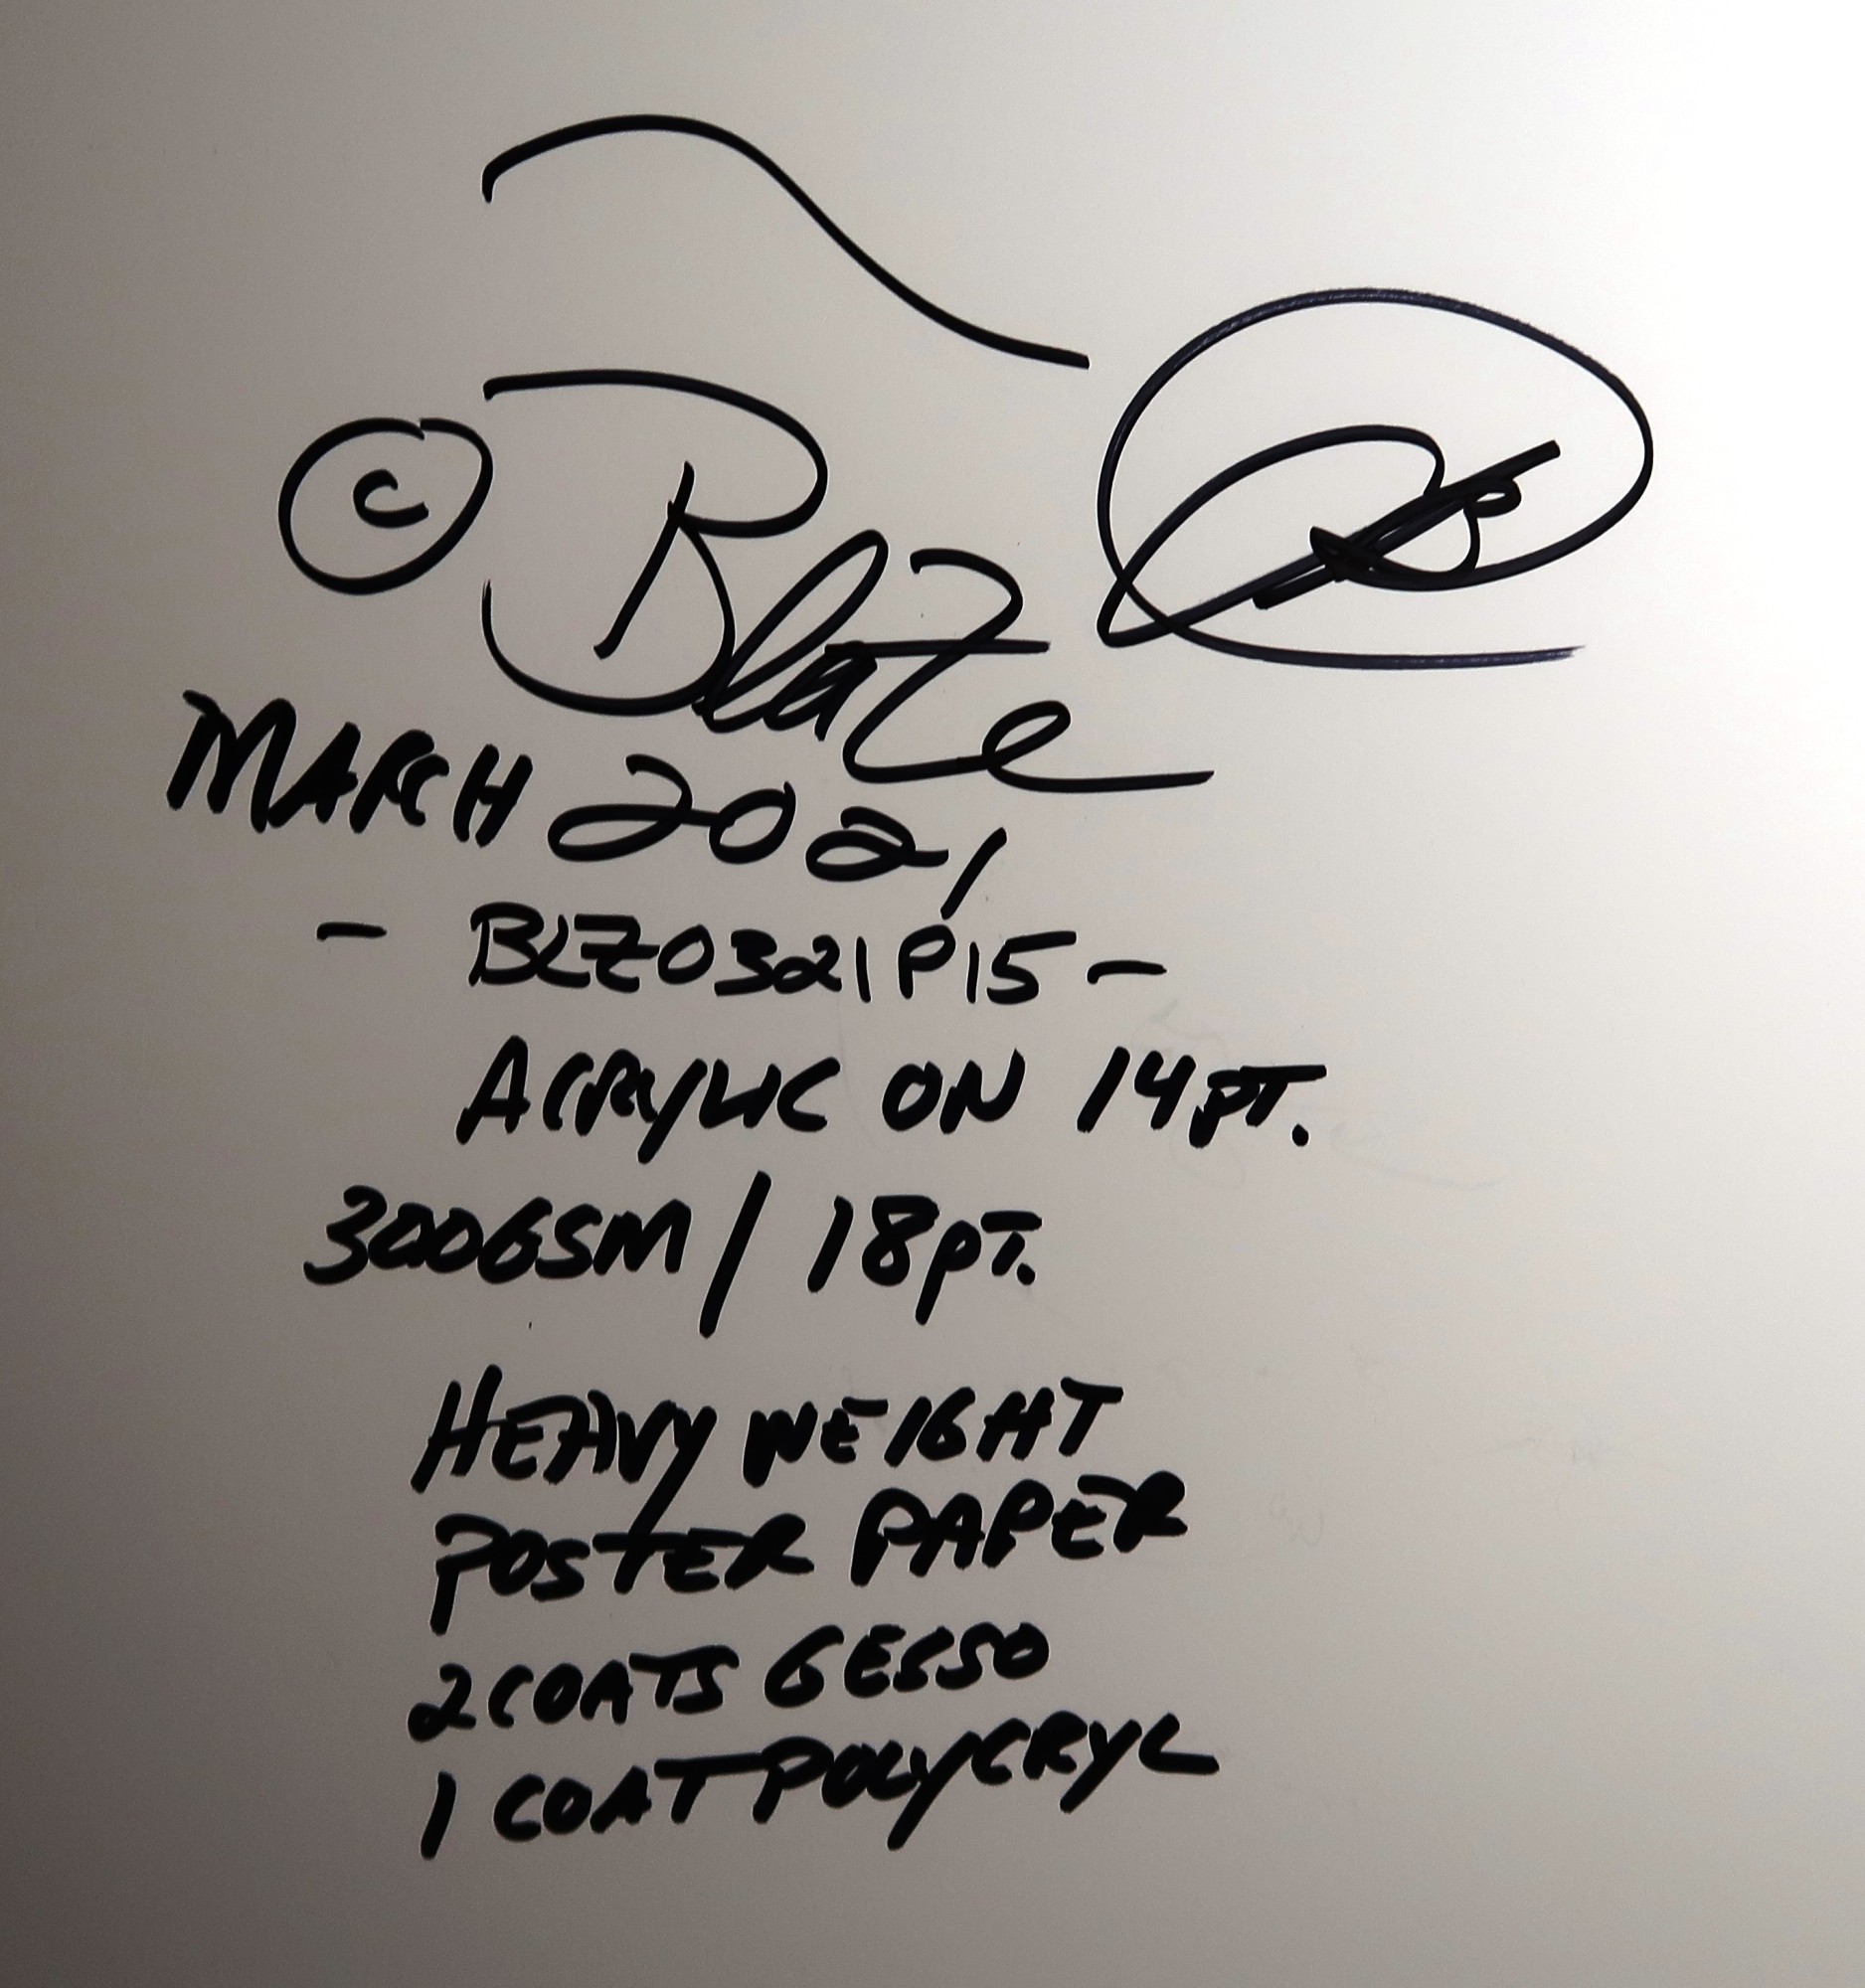 © Blaze
MARCH 2021
- BLZ0321P15 -
ACRYLIC ON 14PT.
300GSM/18PT.
HEAVY WEIGHT
POSTER PAPER
2 COATS GESSO
1 COAT POLYCRYL